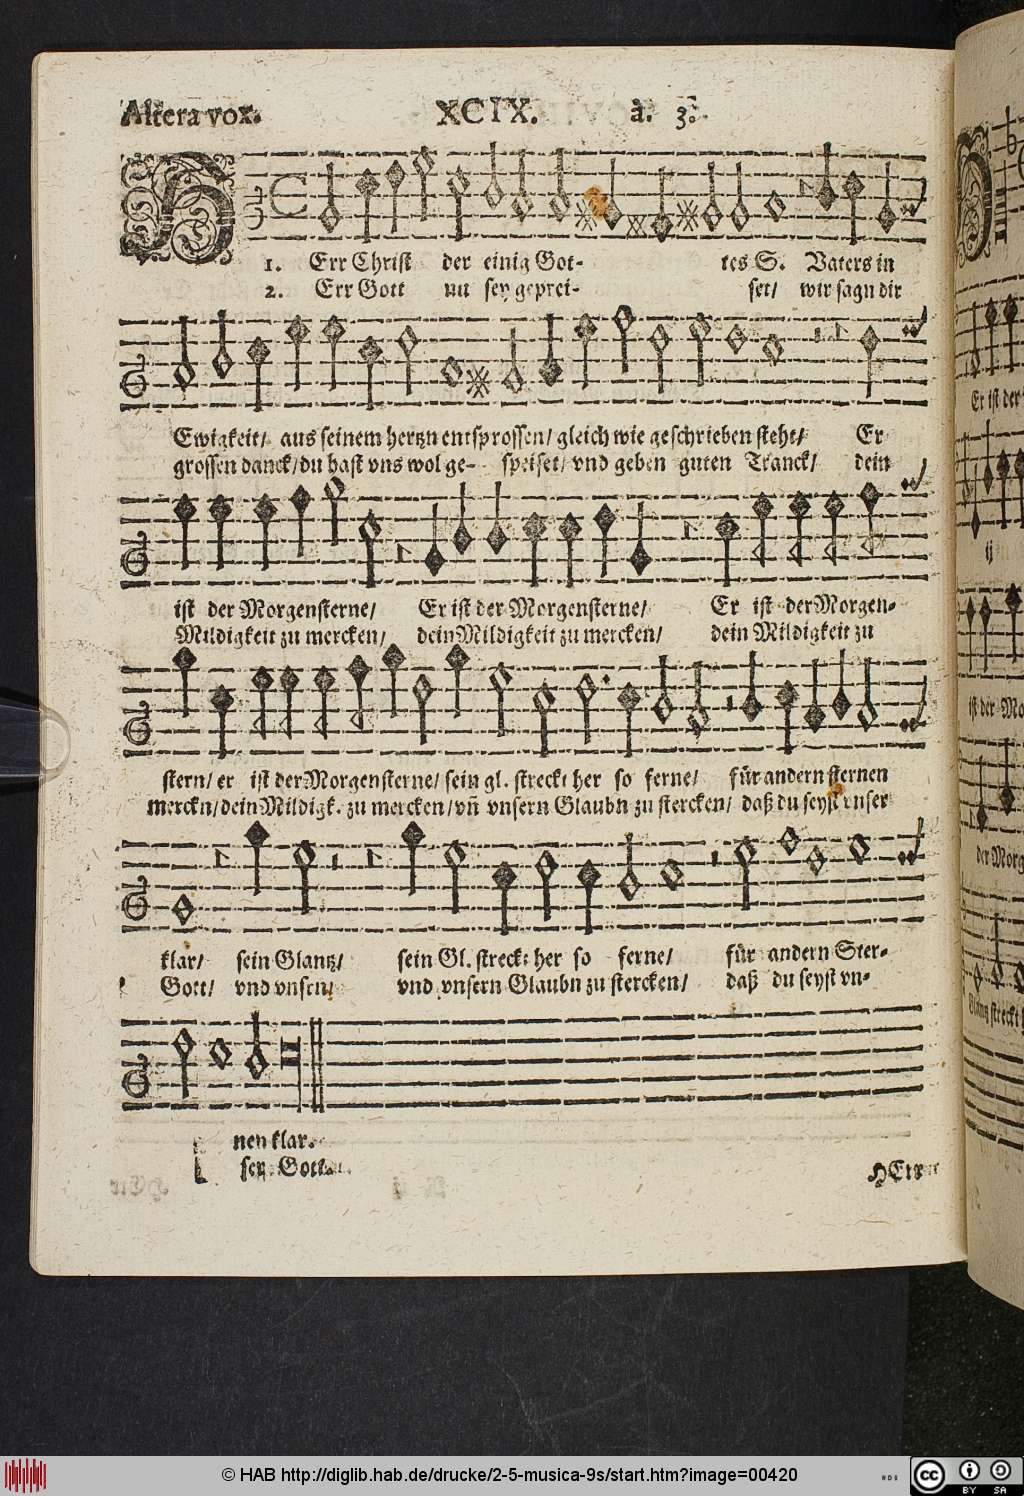 Altera vox. XCIX. à. 3.
1. Err Christ der einig Got- tes S. Vaters in
2. Err Gott nu sey geprei- set/ wir sagn dir
Ewigkeit/ aus seinem hertzn entsprossen/ gleich wie geschrieben steht/ Er
grossen danck/ du hast vns wol ge- speiset/ vnd geben guten Tranck/ dein
ist der Morgensterne/ Er ist der Morgensterne/ Er ist der Morgen-
Mildigkeit zu mercken/ dein Mildigkeit zu mercken/ dein Mildigkeit zu
stern/ er ist der Morgensterne/ sein gl. streckt her so ferne/ für andern sternen
merckn/ dein Mildigk. zu mercken/ vn̄ vnsern Glaubn zu stercken/ daß du seyst vnser
klar/ sein Glantz/ sein Gl. streckt her so ferne/ für andern Ster-
Gott/ vnd vnsen/ vnd vnsern Glaubn zu stercken/ daß du seyst vn-
nen klar.
ser Gott.
HErr
Er ist der
ij
ist der Mo
der Morg
Glantz streckt
© HAB http://diglib.hab.de/drucke/2-5-musica-9s/start.htm?image=00420
cc BY SA